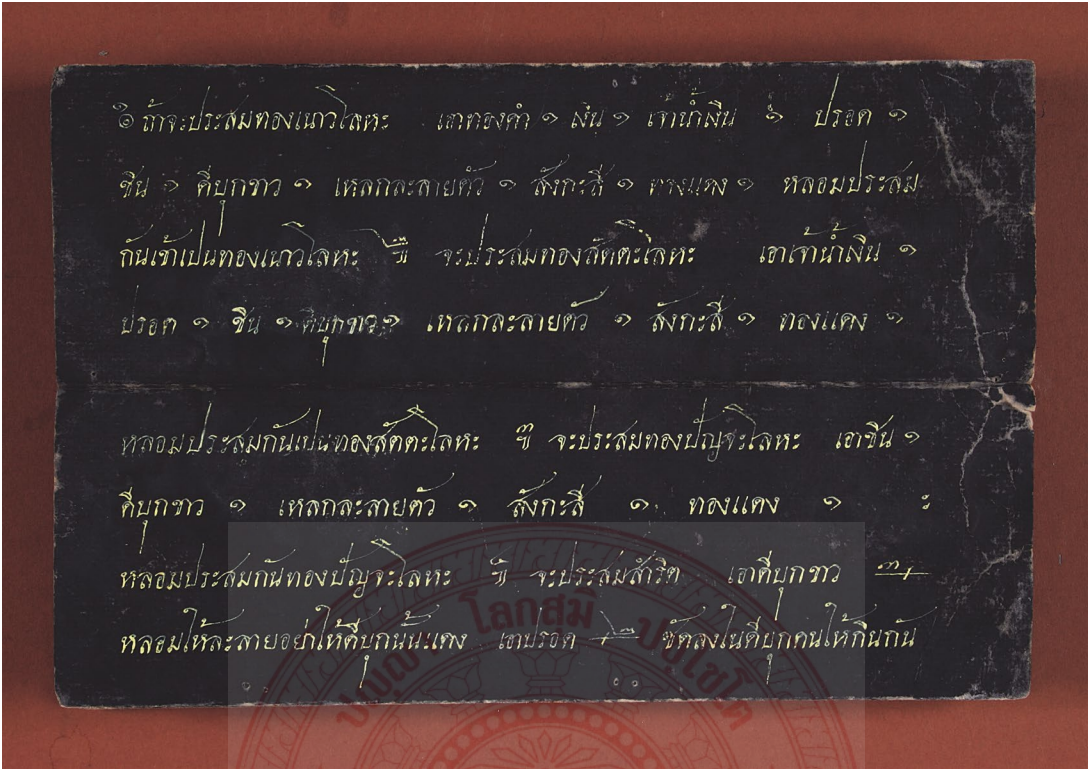 ๏ ถ้าจะประสมทองเนาวโลหะ เอาทองคำ ๑ เงิน ๑ เจ้าน้ำเงิน ๑ ปรอด ๑
ชีน ๑ ดีบุกขาว ๑ เหลกละลายตัว ๑ สังกะสี ๑ ทองแดง ๑ หลอมประสม
กันเข้าเปนทองเนาวโลหะ ๚ จะประสมทองสัตตะโลหะ เอาเจ้าน้ำเงิน ๑
ปรอด ๑ ชีน ๑ ดีบุกขาว ๑ เหลกละลายตัว ๑ สังกะสี ๑ ทองแดง ๑
หลอมประสมกันเปนทองสัตตะโลหะ ๚ จะประสมทองปัญจะโลหะ เอาชีน ๑
ดีบุกขาว ๑ เหลกละลายตัว ๑ สังกะสี ๑ ทองแดง ๑ ะ
หลอมประสมกันทองปัญจะโลหะ ๚ จะประสมสำริด เอาดีบุกขาว
หลอมให้ละลายอย่าให้ดีบุกนั้นแดง เอาปรอด ซัดลงในดีบุกคนให้กินกัน
โลกสฺมิ ปชฺโชโต